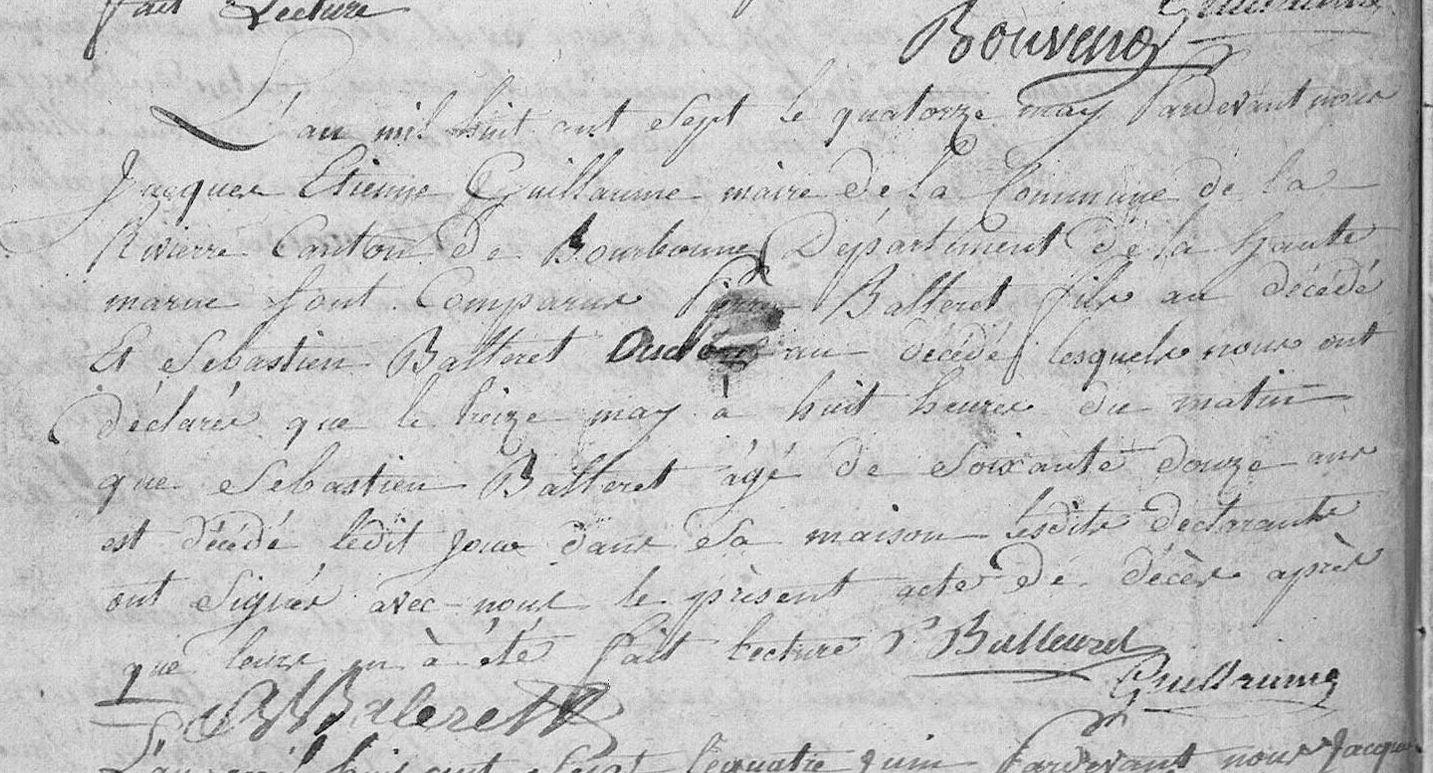 fait Lecture Guillaume
Bouvenot
L'an mil huit cent sept le quatorze may Pardevant nous
Jacques Etienne Guillaume maire de la Commune de la
Rivierre Canton de Bourbonne Département de la haute
marne sont Comparus Pierre Balteret fils au décédé
Et Sebastien Balteret au décédé lesquels nous ont
déclarés que le treize may à huit heures du matin
que Sebastien Balteret âgé de Soixante douze ans
est décédé ledit jour dans Sa maison lesdits declarants
ont Signés avec nous le prèsent acte de décès après
que leurs en à été fait lecture P Balleuret
Guillaume
Baleret
L'an mil huit cent Sept le quatre juin Pardevant nous Jacques